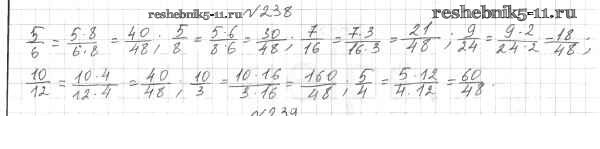 www.reshebnik5-11.ru №238 reshebnik5-11.ru
5/6 = 5·8/6·8 = 40/48; 5/8 = 5·6/8·6 = 30/48; 7/16 = 7·3/16·3 = 21/48; 9/24 = 9·2/24·2 = 18/48;
10/12 = 10·4/12·4 = 40/48; 10/3 = 10·16/3·16 = 160/48; 5/4 = 5·12/4·12 = 60/48.
№239